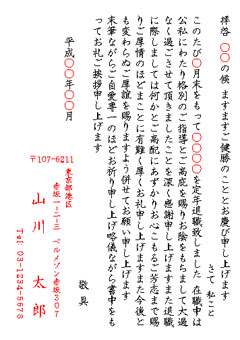 拝啓 〇〇の候 ますますご健勝のこととお慶び申し上げます
さて 私こと
このたび〇月末をもって〇〇〇〇を定年退職致しました 在職中は
公私にわたり格別のご指導とご高庇を賜りお陰をもちまして大過
なく過ごさせて頂きましたことを深く感謝申し上げます また退職
に際しましては何かとご高配にあずかりお心こもるご芳志まで賜
りご厚情のほどまことに有難く厚くお礼申し上げます また今後と
も変わらぬご厚誼を賜りますよう併せてお願い申し上げます
末筆ながらご自愛専一のほどお祈り申し上げ略儀ながら書中をも
ってお礼ご挨拶申し上げます
敬具
平成〇〇年〇〇月
〒107-6211
東京都港区
赤坂一-二-三 ベルメゾン赤坂307
山川 太郎
Tel 03-1234-5678